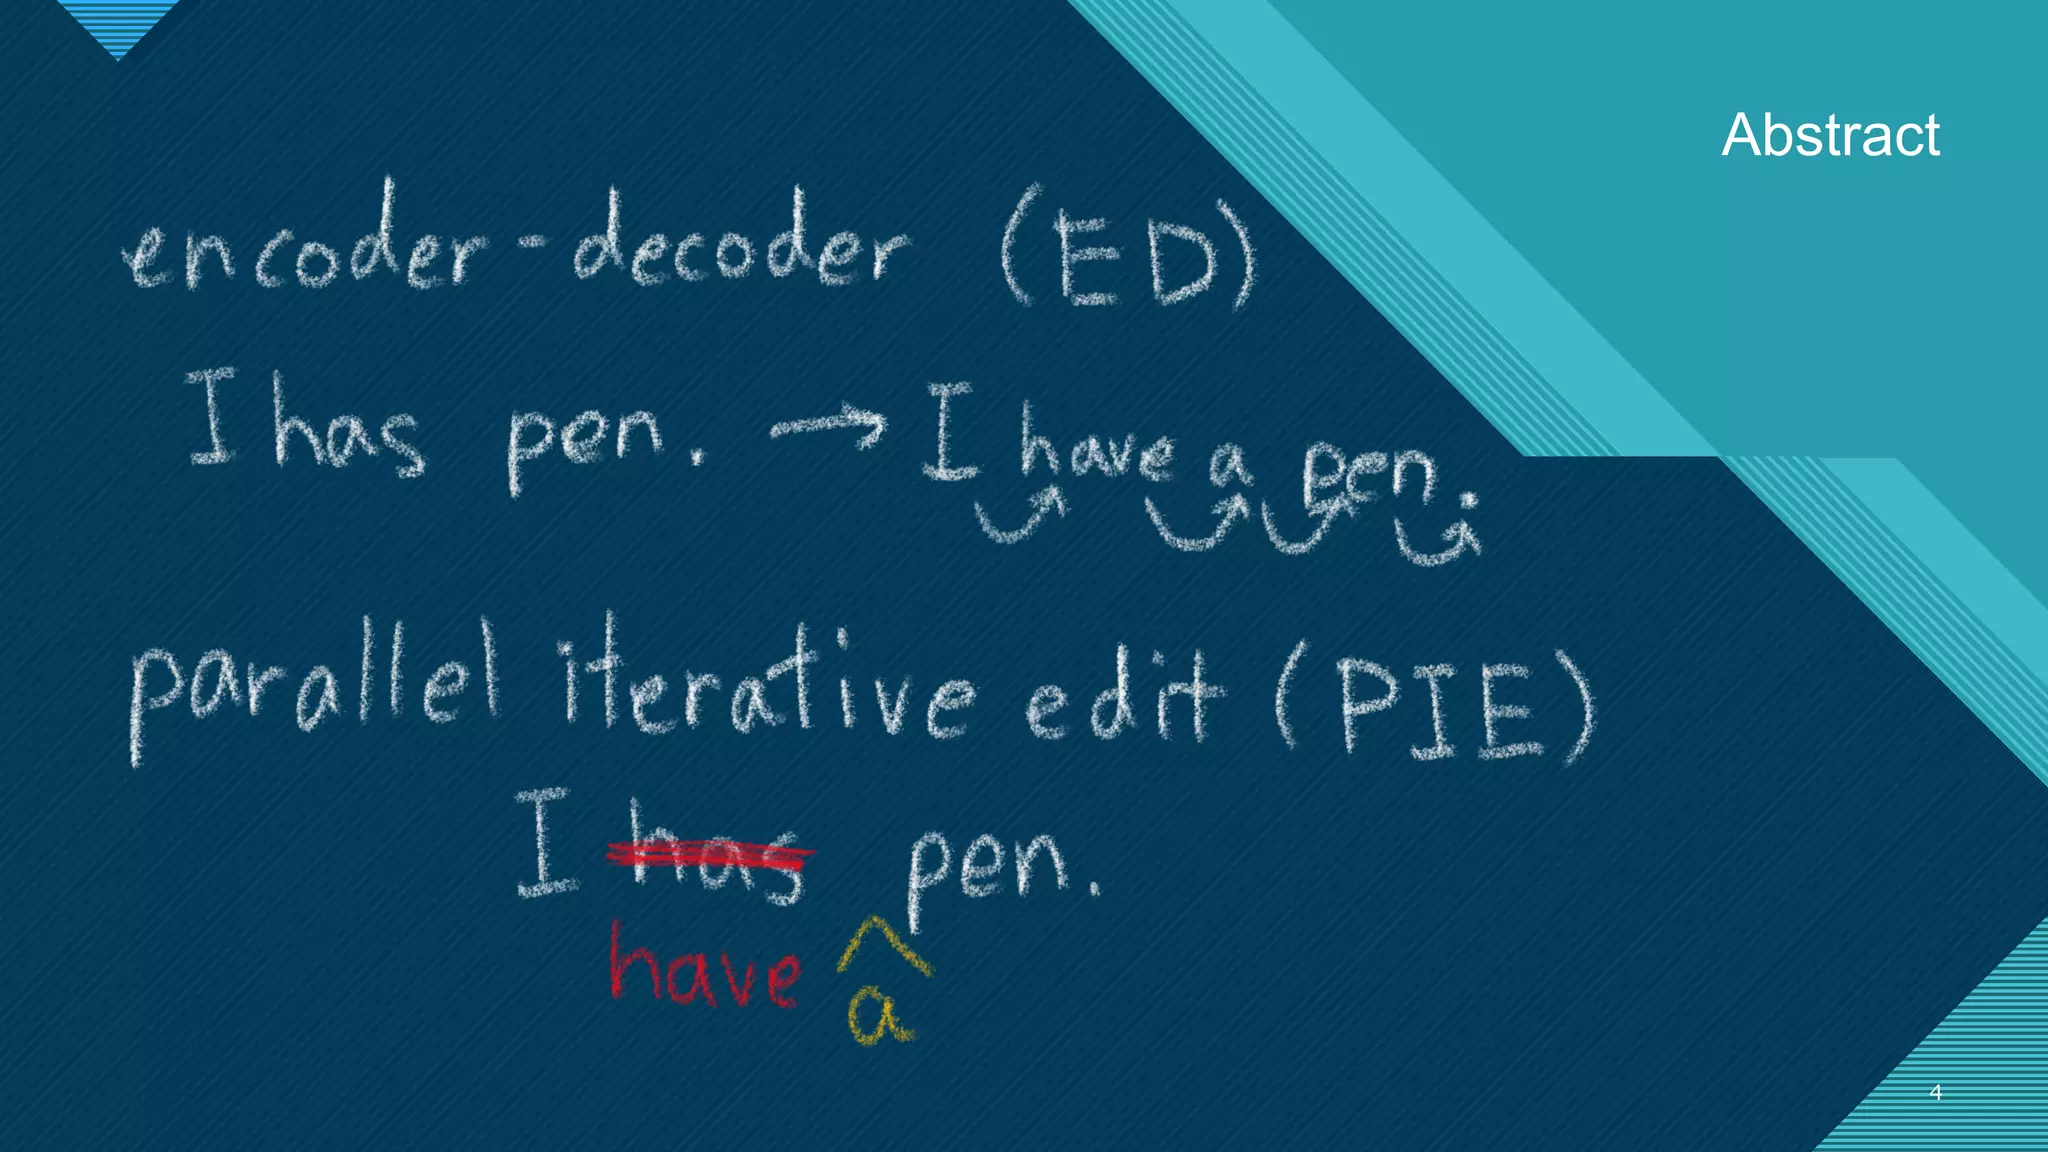 Abstract
encoder-decoder (ED)
I has pen. → I have a pen.
parallel iterative edit (PIE)
I has pen.
have a
4